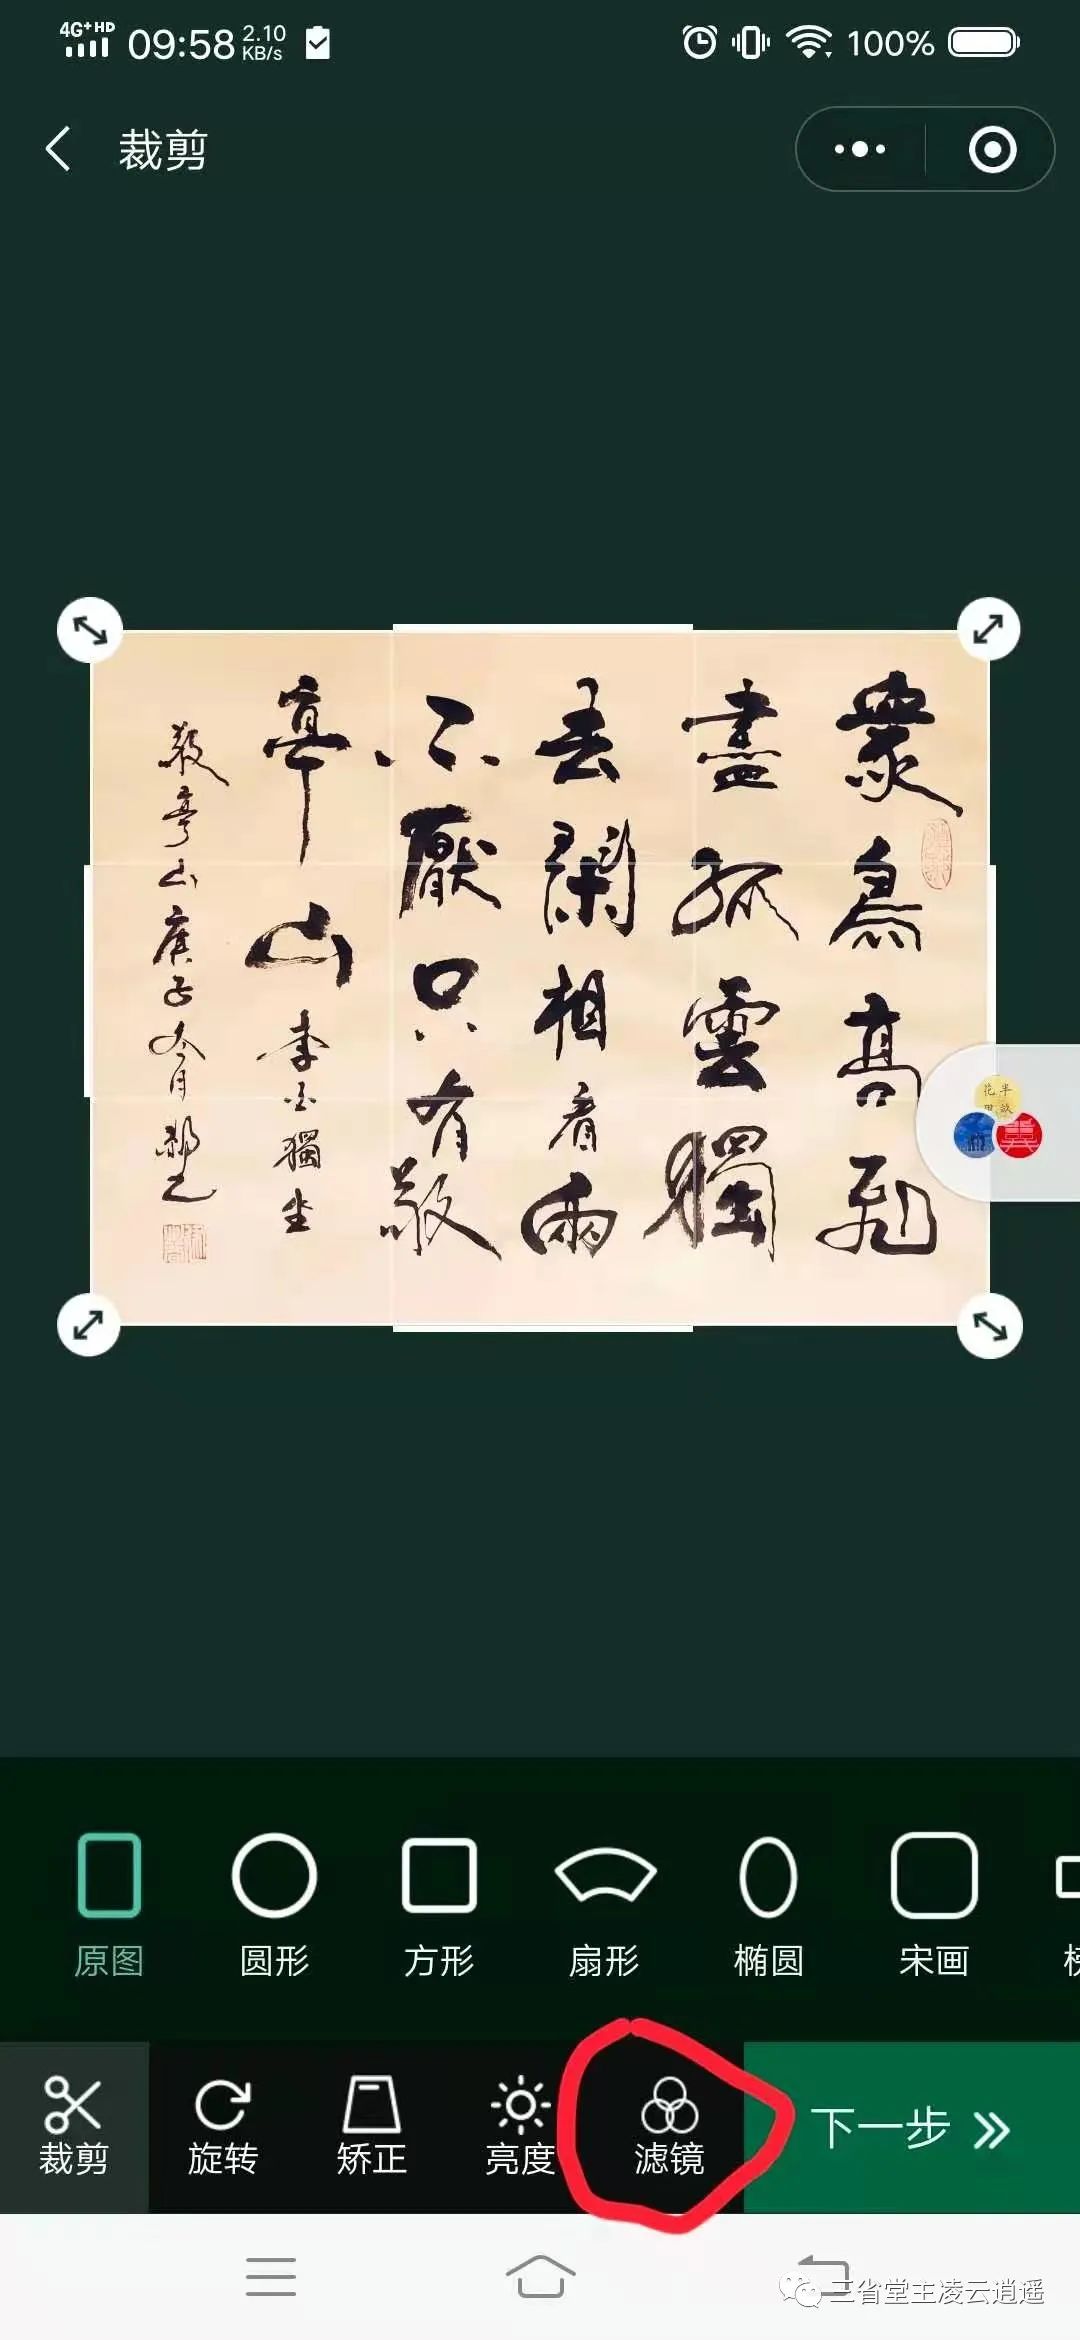 4G+HD
09:58
2.10
KB/s
100%
裁剪
衆鳥高飛
盡孤雲獨
去閑相看兩
不厭只有敬
亭山李白獨坐
敬亭山庚子冬月
花半
原图
圆形
方形
扇形
椭圆
宋画
裁剪
旋转
矫正
亮度
滤镜
下一步
三省堂主凌云逍遥